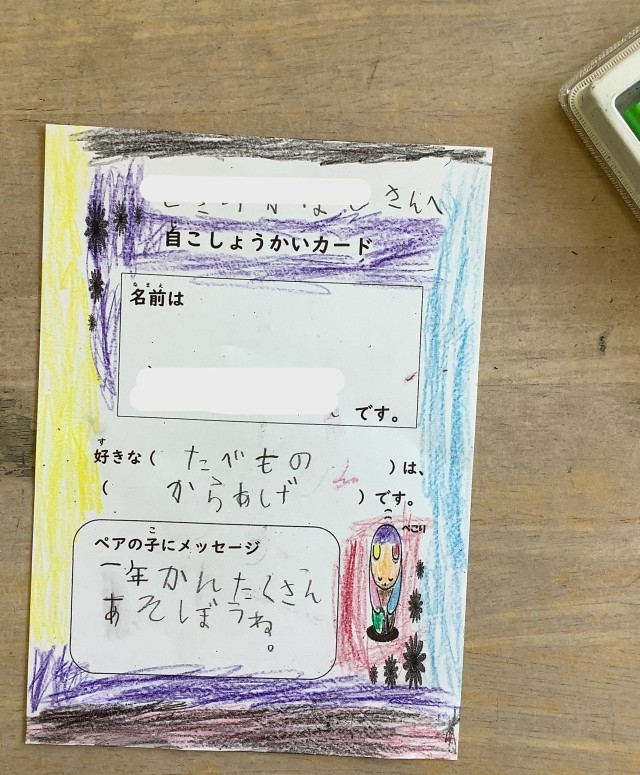 さんへ
自こしょうかいカード
じ
なまえ
名前は
です。
す
好きな( たべもの )は、
( からあげ )です。
ぺこり
こ
ペアの子にメッセージ
一年かんたくさん
あそぼうね。